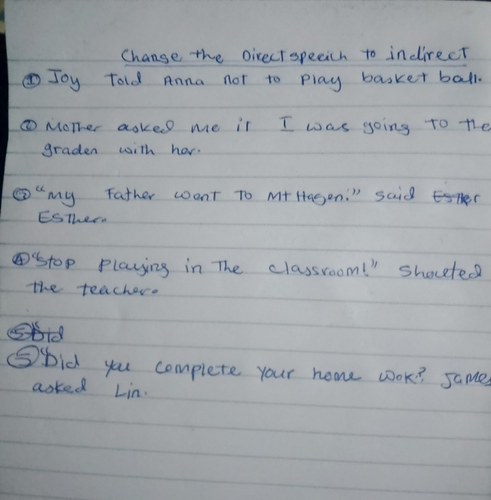 Change the Direct speeich to indirect
① Joy Told Anna not to Play basket ball.
② Mother asked me if I was going to the
graden with her.
③ "My Father want To Mt Hagen." said Esther
Esther.
④ "Stop Playing in The classroom!" Shouted
the teacher.
⑤ "Did
⑤ "Did you complete your home wok? James
asked Lin.